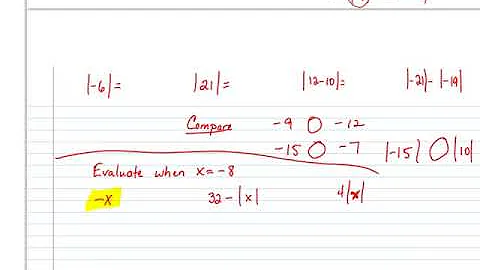 |-6|= |21|= |12-10|= |-21|-|-19|
Compare -9 ○ -12
-15 ○ -7 |-15| ○ |10|
Evaluate when x=-8
-x 32-|x| 4|x|